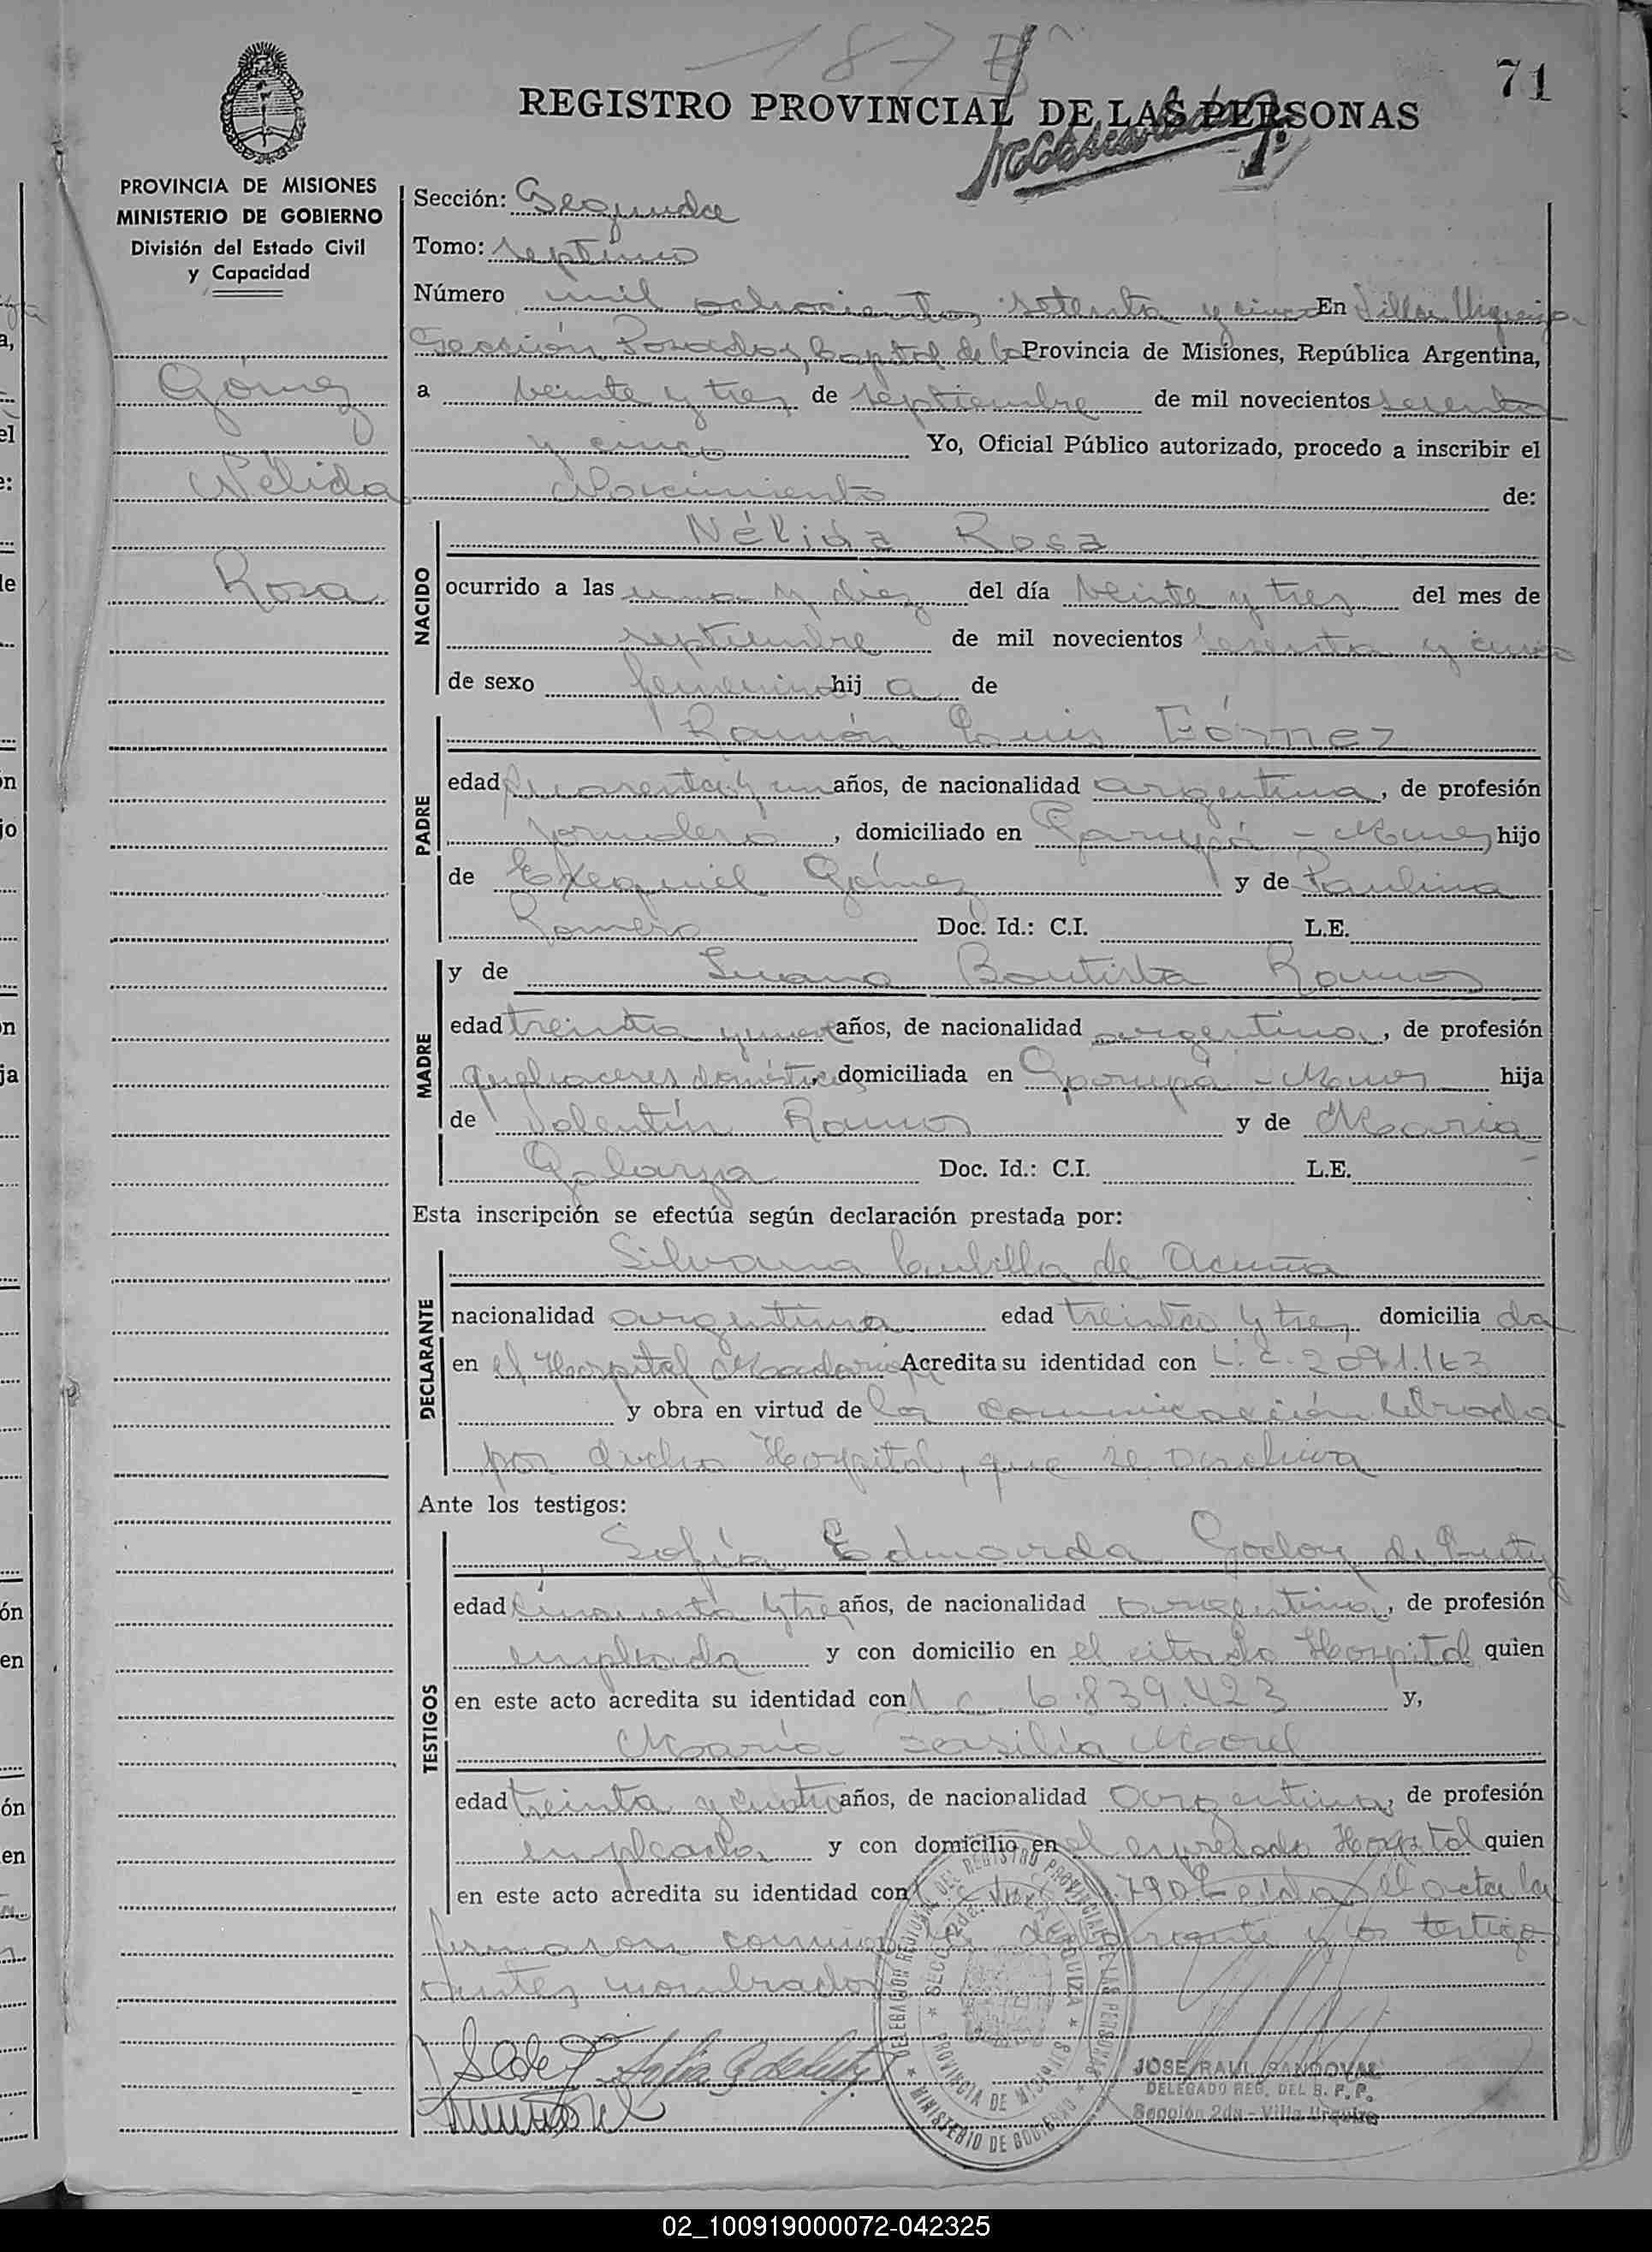 187
71
REGISTRO PROVINCIAL DE LAS PERSONAS
PROVINCIA DE MISIONES
MINISTERIO DE GOBIERNO
División del Estado Civil
y Capacidad
Gómez
Nélida
Rosa
Sección: Segunda
Tomo: septimo
Número mil ochocientos setenta y cinco En Villa Urquiza
Sección Posadas, Capital de la Provincia de Misiones, República Argentina,
a veinte y tres de septiembre de mil novecientos sesenta
y cinco Yo, Oficial Público autorizado, procedo a inscribir el
Nacimiento de:
NACIDO
Nélida Rosa
ocurrido a las una y diez del día veinte y tres del mes de
septiembre de mil novecientos sesenta y cinco
de sexo femenino hij a de
PADRE
Ramón Luis Gómez
edad cuarenta y un años, de nacionalidad argentina, de profesión
jornalero, domiciliado en Garupá - Mnes, hijo
de Exequiel Gómez y de Paulina
Romero Doc. Id.: C.I. L.E.
MADRE
y de Juana Bautista Ramos
edad treinta y años, de nacionalidad argentina, de profesión
quehaceres domésticos, domiciliada en Garupá - hija
de Valentín Ramos y de María
Galarza Doc. Id.: C.I. L.E.
Esta inscripción se efectúa según declaración prestada por:
DECLARANTE
Silvana de Acuña
nacionalidad argentina edad treinta y tres domicilia da
en el Hospital Madariaga Acredita su identidad con L.C. 2091.163
y obra en virtud de la comunicación librada
por dicho Hospital, que se archiva
Ante los testigos:
TESTIGOS
Sofía Edmarda Godoy de
edad cincuenta y tres años, de nacionalidad argentina, de profesión
empleada y con domicilio en el citado Hospital quien
en este acto acredita su identidad con L C 6.839.423 y,
María Basilia Morel
edad treinta y cuatro años, de nacionalidad argentina, de profesión
empleada y con domicilio en el expresado Hospital quien
en este acto acredita su identidad con Leída el acta la
firmaron conmigo la declarante y los testigos
antes nombrados
DELEGACION REGIONAL DEL REGISTRO PROVINCIAL DE LAS PERSONAS
MINISTERIO DE GOBIERNO
SECC. 2da. VILLA URQUIZA
PROVINCIA DE MISIONES
JOSE RAUL SANDOVAL
DELEGADO REG. DEL R. P. P.
Sección 2da - Villa Urquiza
02_100919000072-042325